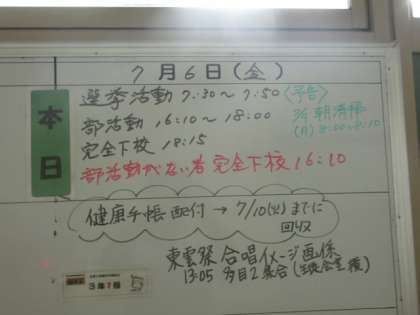 7月6日(金)
本日
選挙活動 7:30～7:50
〈予告〉
7/9 朝清掃
(月) 8:00～8:10
部活動 16:10～18:00
完全下校 18:15
部活動がない者 完全下校 16:10
健康手帳配付→7/10(火)までに
回収
東雲祭 合唱イメージ画係
13:05 多目2集合
3年1組